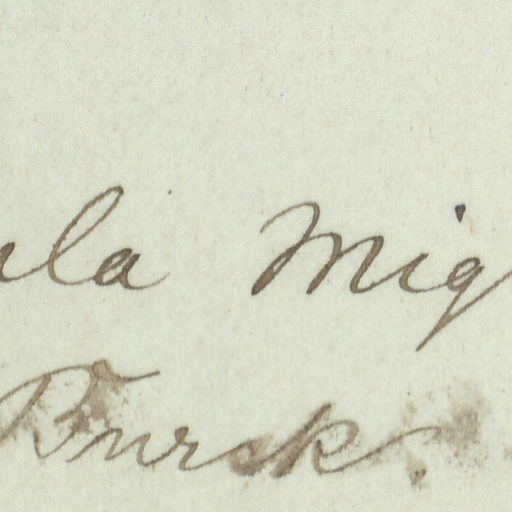 ula Mig
Bursk.